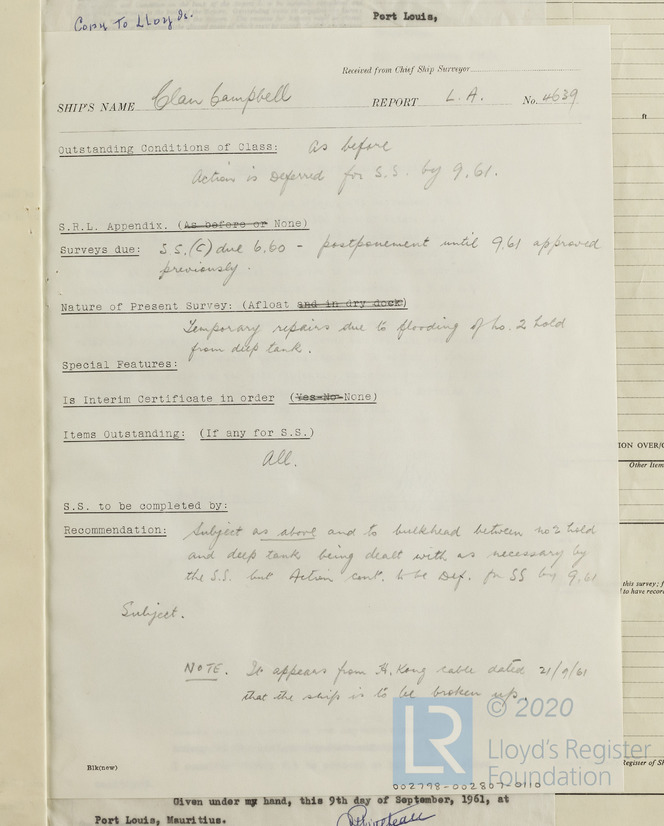 Copy To Lloyds.
Port Louis,
Received from Chief Ship Surveyor
SHIP'S NAME Clan Campbell REPORT L.A. No. 4639
ft
Outstanding Conditions of Class: As before
Action is Deferred for S.S. by 9.61.
S.R.L. Appendix. (As before or None)
Surveys due: S.S.(C) due 6.60 - postponement until 9.61 approved
previously.
Nature of Present Survey: (Afloat and in dry dock)
Temporary repairs due to flooding of no. 2 hold
from deep tank.
Special Features:
Is Interim Certificate in order (Yes-No-None)
Items Outstanding: (If any for S.S.)
ION OVER/
Other Item
All.
S.S. to be completed by:
Recommendation: Subject as above and to bulkhead between no 2 hold
and deep tank being dealt with as necessary by
the S.S. but Action cont. to be Def. for SS by 9.61
this survey;
to have recor
Subject.
NOTE. It appears from H. Kong cable dated 21/9/61
that the ship is to be broken up.
© 2020
LR Lloyd's Register
Foundation
Register of Sh
Blk(new)
002798-002807-0110
Given under my hand, this 9th day of September, 1961, at
Port Louis, Mauritius.